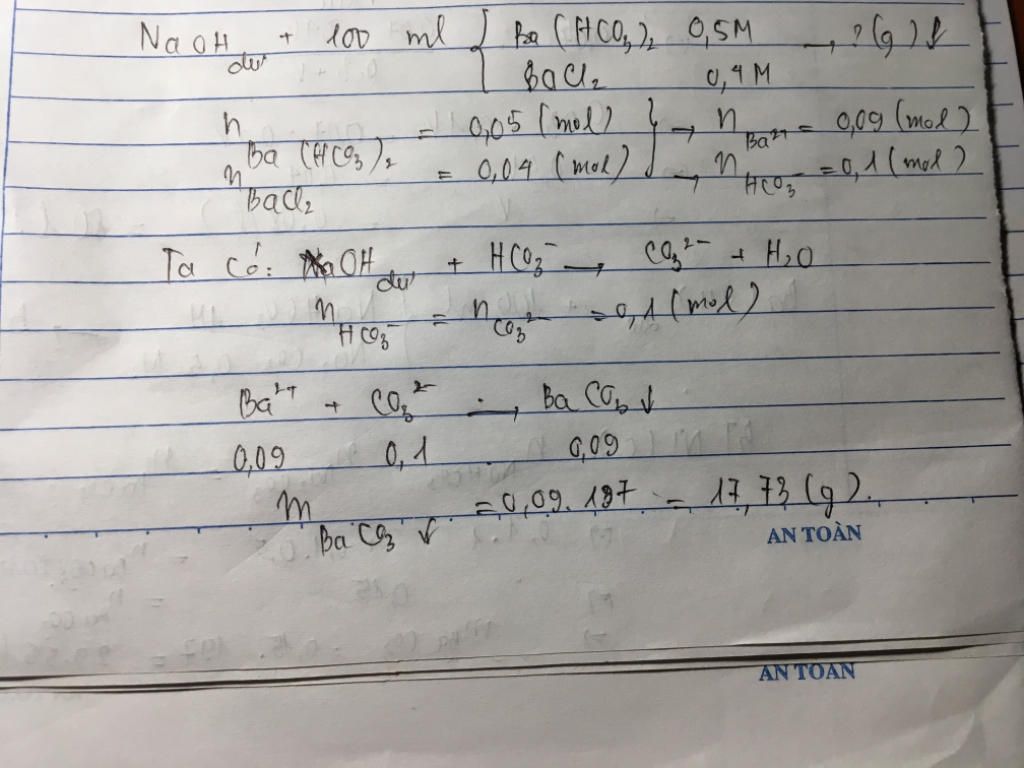 NaOH dư + 100 ml { Ba(HCO3)2 0,5M → ? (g) ↓
BaCl2 0,4M
n Ba(HCO3)2 = 0,05 (mol) } → n Ba2+ = 0,09 (mol)
n BaCl2 = 0,04 (mol) → n HCO3- = 0,1 (mol)
Ta có: OH dư + HCO3- → CO3 2- + H2O
n HCO3- = n CO3 2- = 0,1 (mol)
Ba2+ + CO3 2- → BaCO3 ↓
0,09 0,1 0,09
m BaCO3 ↓ = 0,09.197 = 17,73 (g).
AN TOÀN
AN TOAN